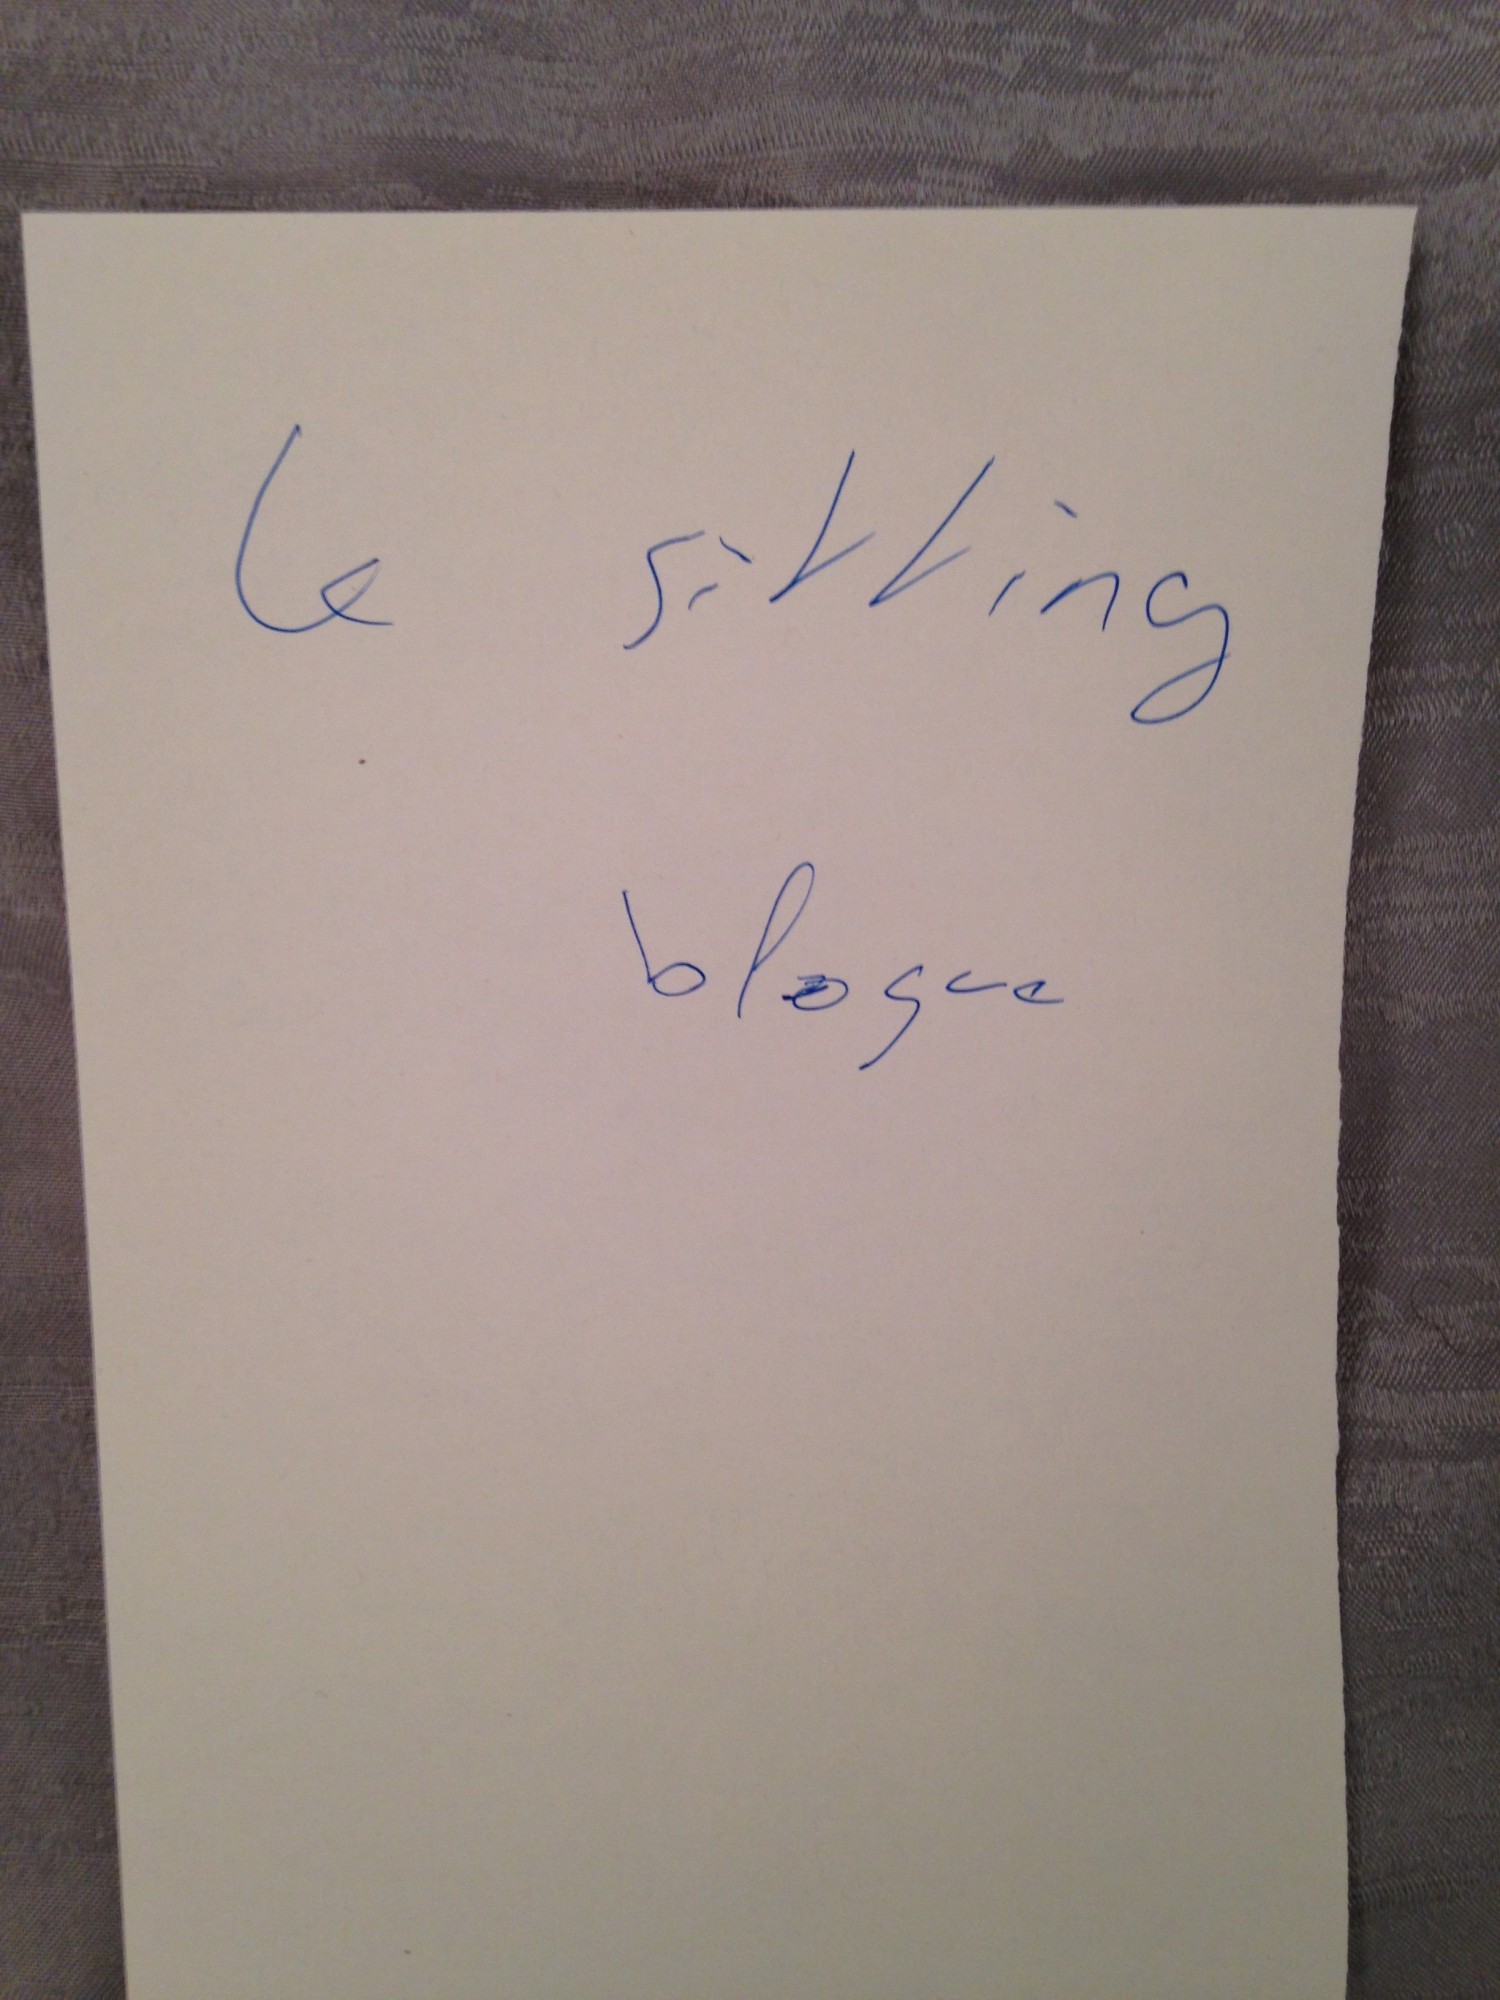 le sitting
blogue